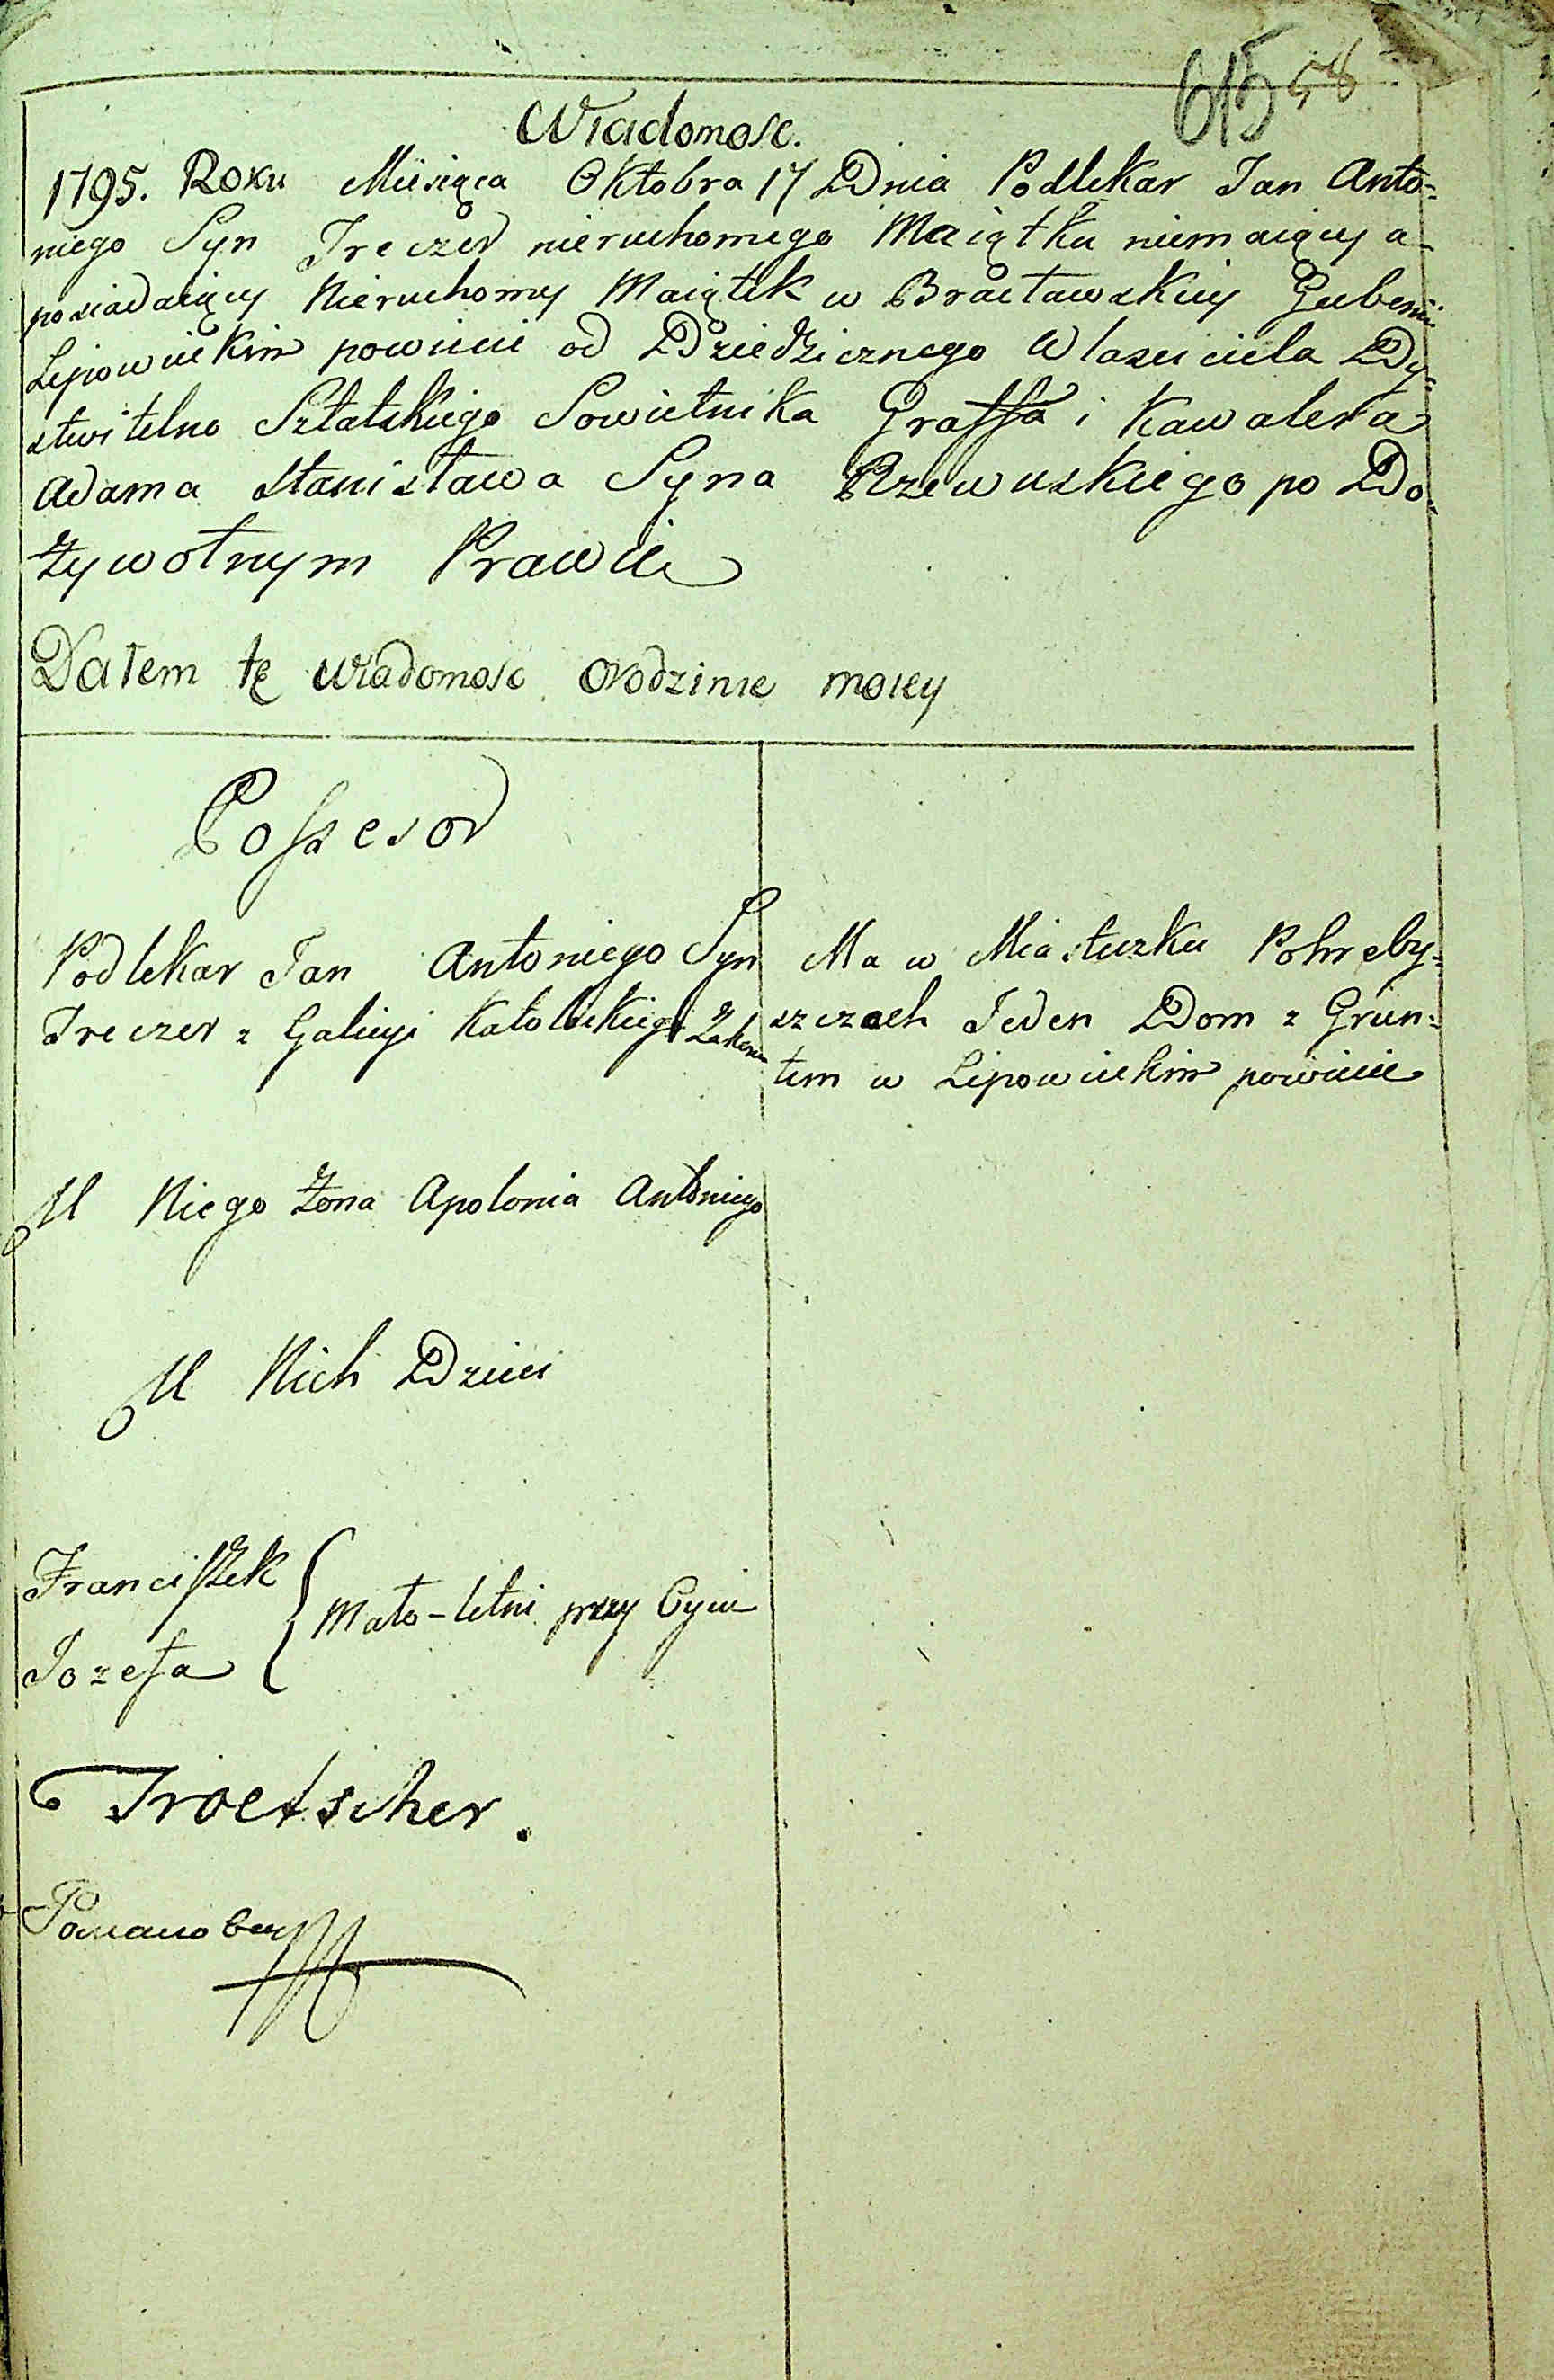 615 58
Wiadomosc.
1795. Roku Miesiąca Oktobra 17 Dnia Podlekar Jan Anto=
niego Syn Treczer nieruchomego Maiątku niemaiący a-
posiadaiący Nieruchomy Maiątek w Bracławskiey Guberni
Lipowieckim powiecie od Dziedzicznego Wlasciciela Dy=
stwitelno Sztatskiego Sowietnika Graffa i Kawalera
Adama Stanisława Syna Rzewuskiego po Do=
żywotnym Prawie
Dałem tę wiadomość orodzinie moiey
Possesor
Podlekar Jan Antoniego Syn
Treczer z Galicyi Katolickiego Zakonu
Ma w Miasteczku Pohreby=
szczach Jeden Dom z Grun=
tem w Lipowieckim powiecie
U Niego żona Apolonia Antoniego
U Nich Dzieci
Franciszek
Mało-letni przy Oycu
Jozefa
Troetscher.